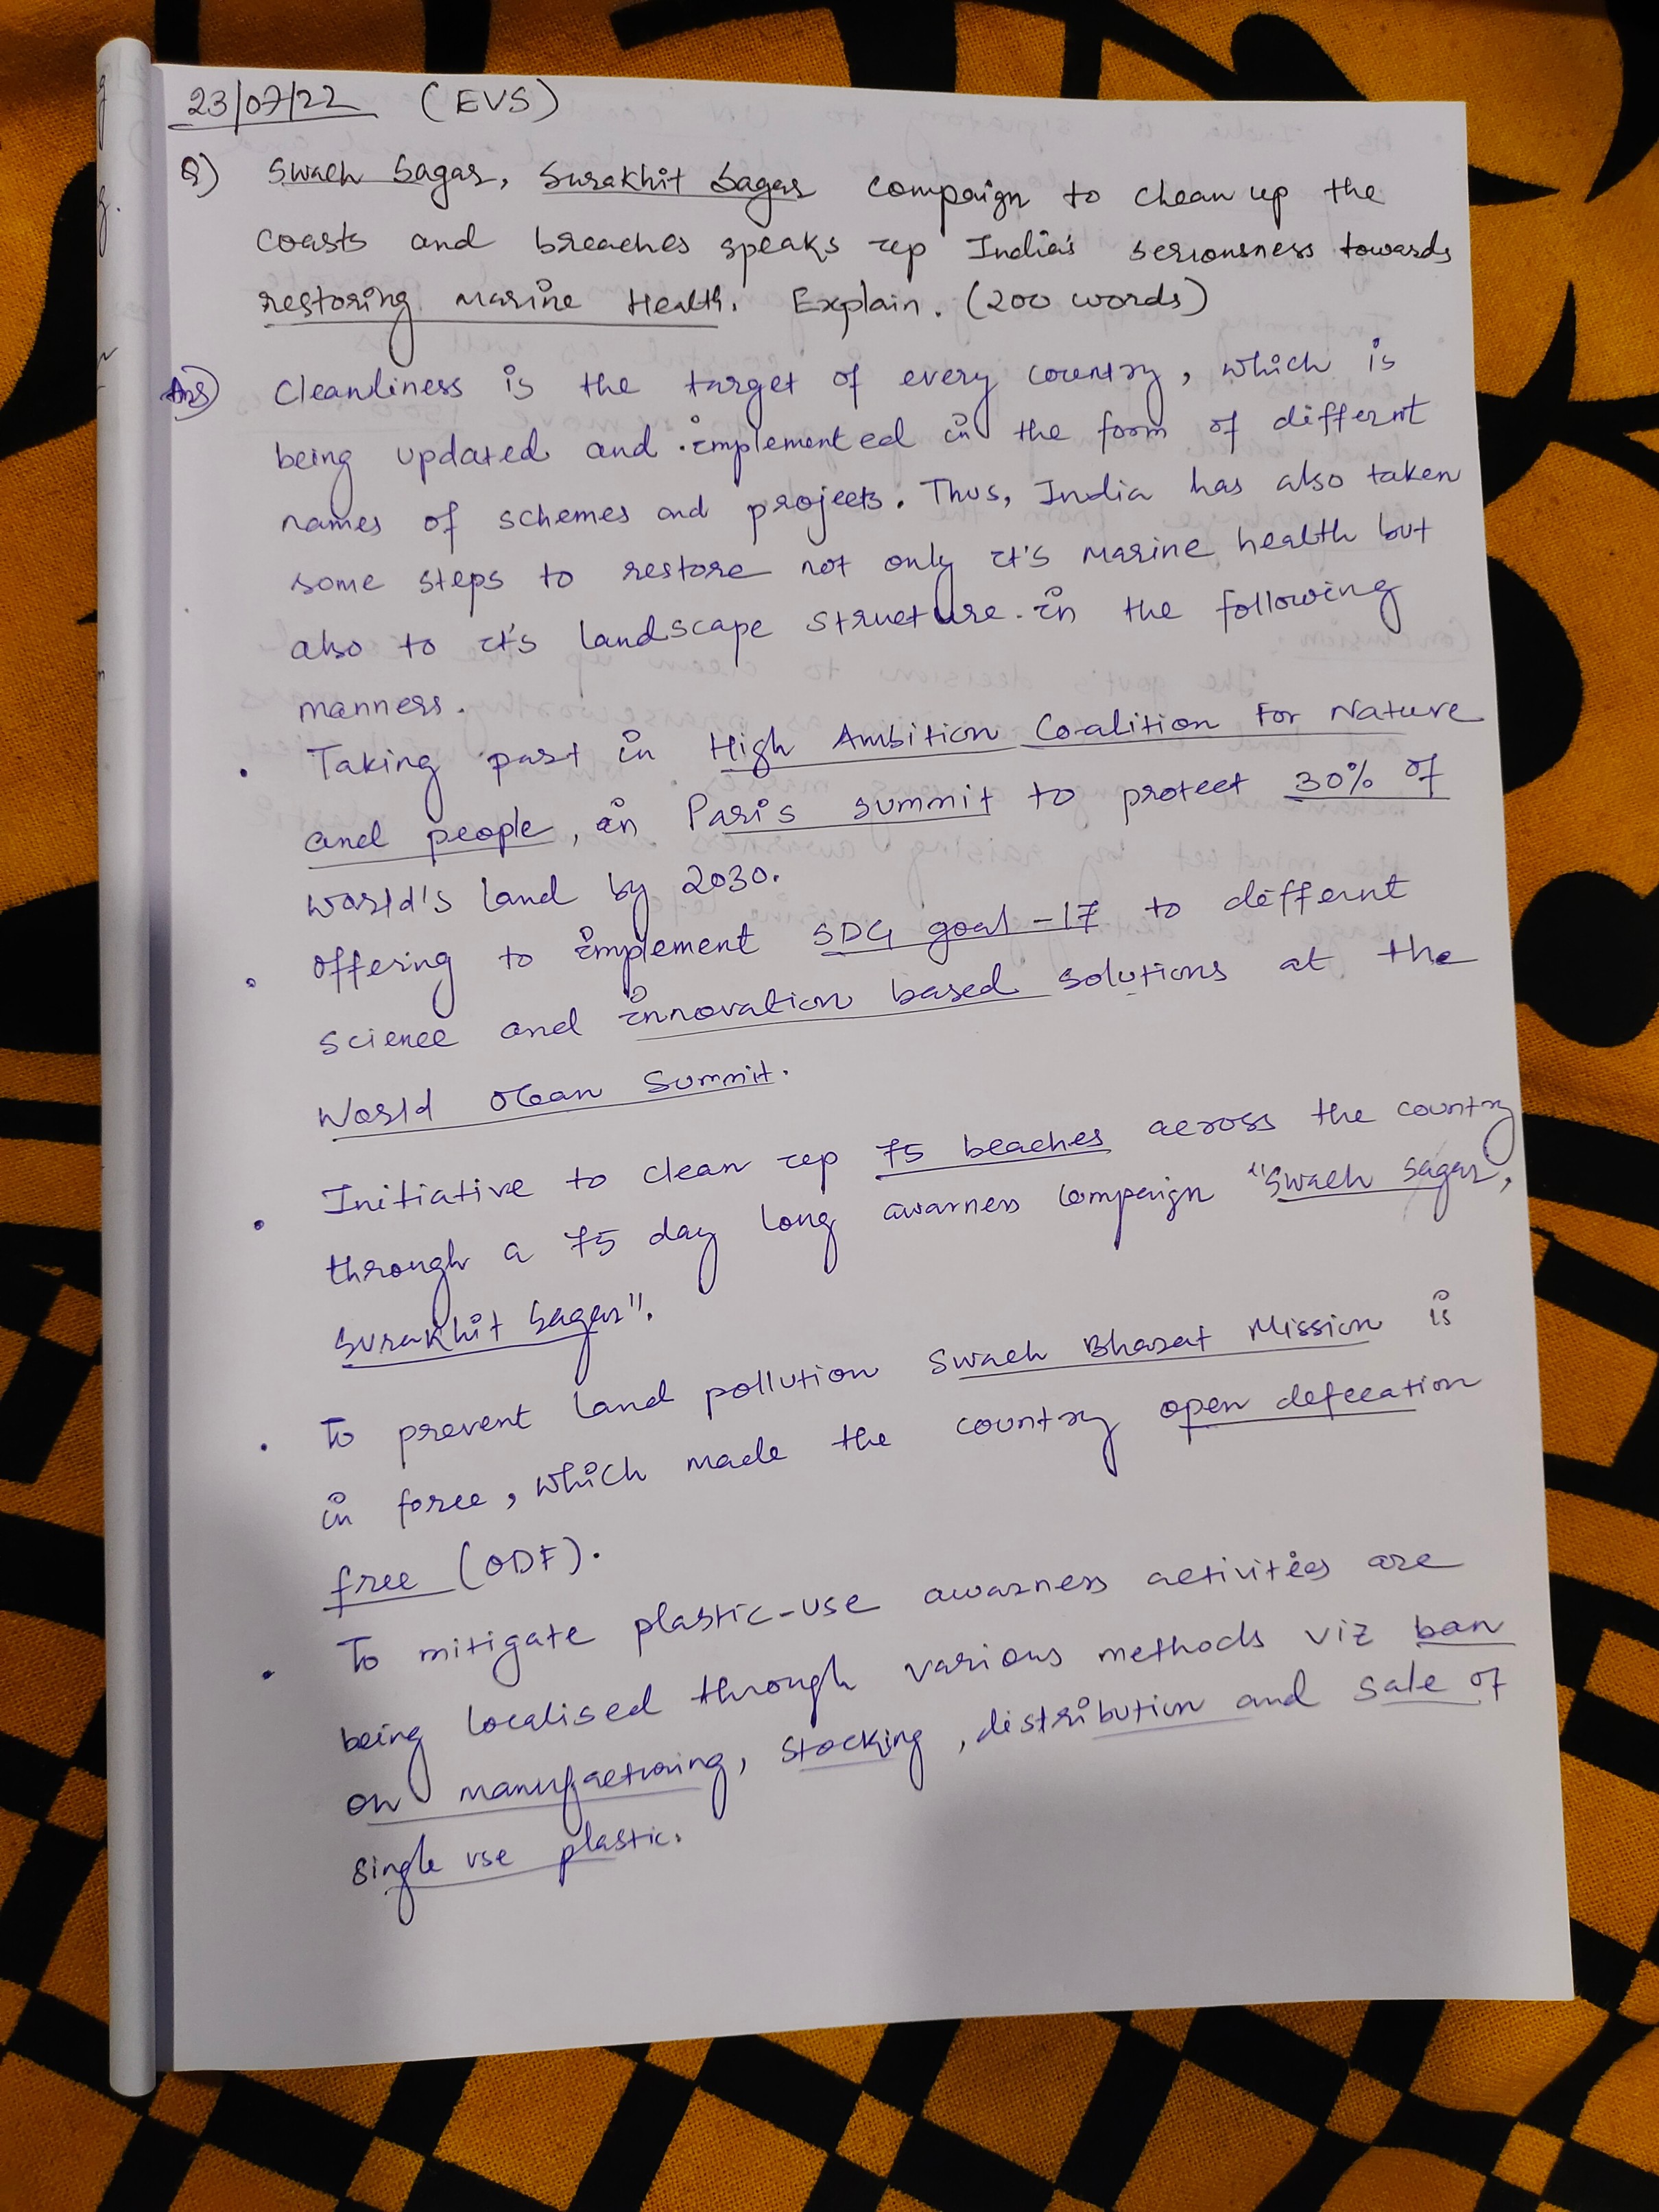 23/07/22 (EVS)
Q) Swach Sagar, Surakhit Sagar compaign to clean up the
coasts and breaches speaks up India's seriousness towards
restoring marine Health. Explain. (200 words)
Ans) Cleanliness is the target of every country, which is
being updated and implemented in the form of differnt
names of schemes and projects. Thus, India has also taken
some steps to restore not only it's marine health but
also to it's landscape structure. in the following
manners.
• Taking part in High Ambition Coalition For Nature
and people, in Paris summit to protect 30% of
world's land by 2030.
• offering to implement SDG goal-17 to differnt
science and innovation based solutions at the
World Ocean Summit.
• Initiative to clean up 75 beaches across the country
through a 75 day long awarness compaign "Swach Sagar,
Surakhit Sagar".
• To prevent land pollution Swach Bharat Mission is
in force, which made the country open defecation
free (ODF).
• To mitigate plastic-use awarness activities are
being localised through various methods viz ban
on manufacturing, stocking, distribution and sale of
single use plastic.